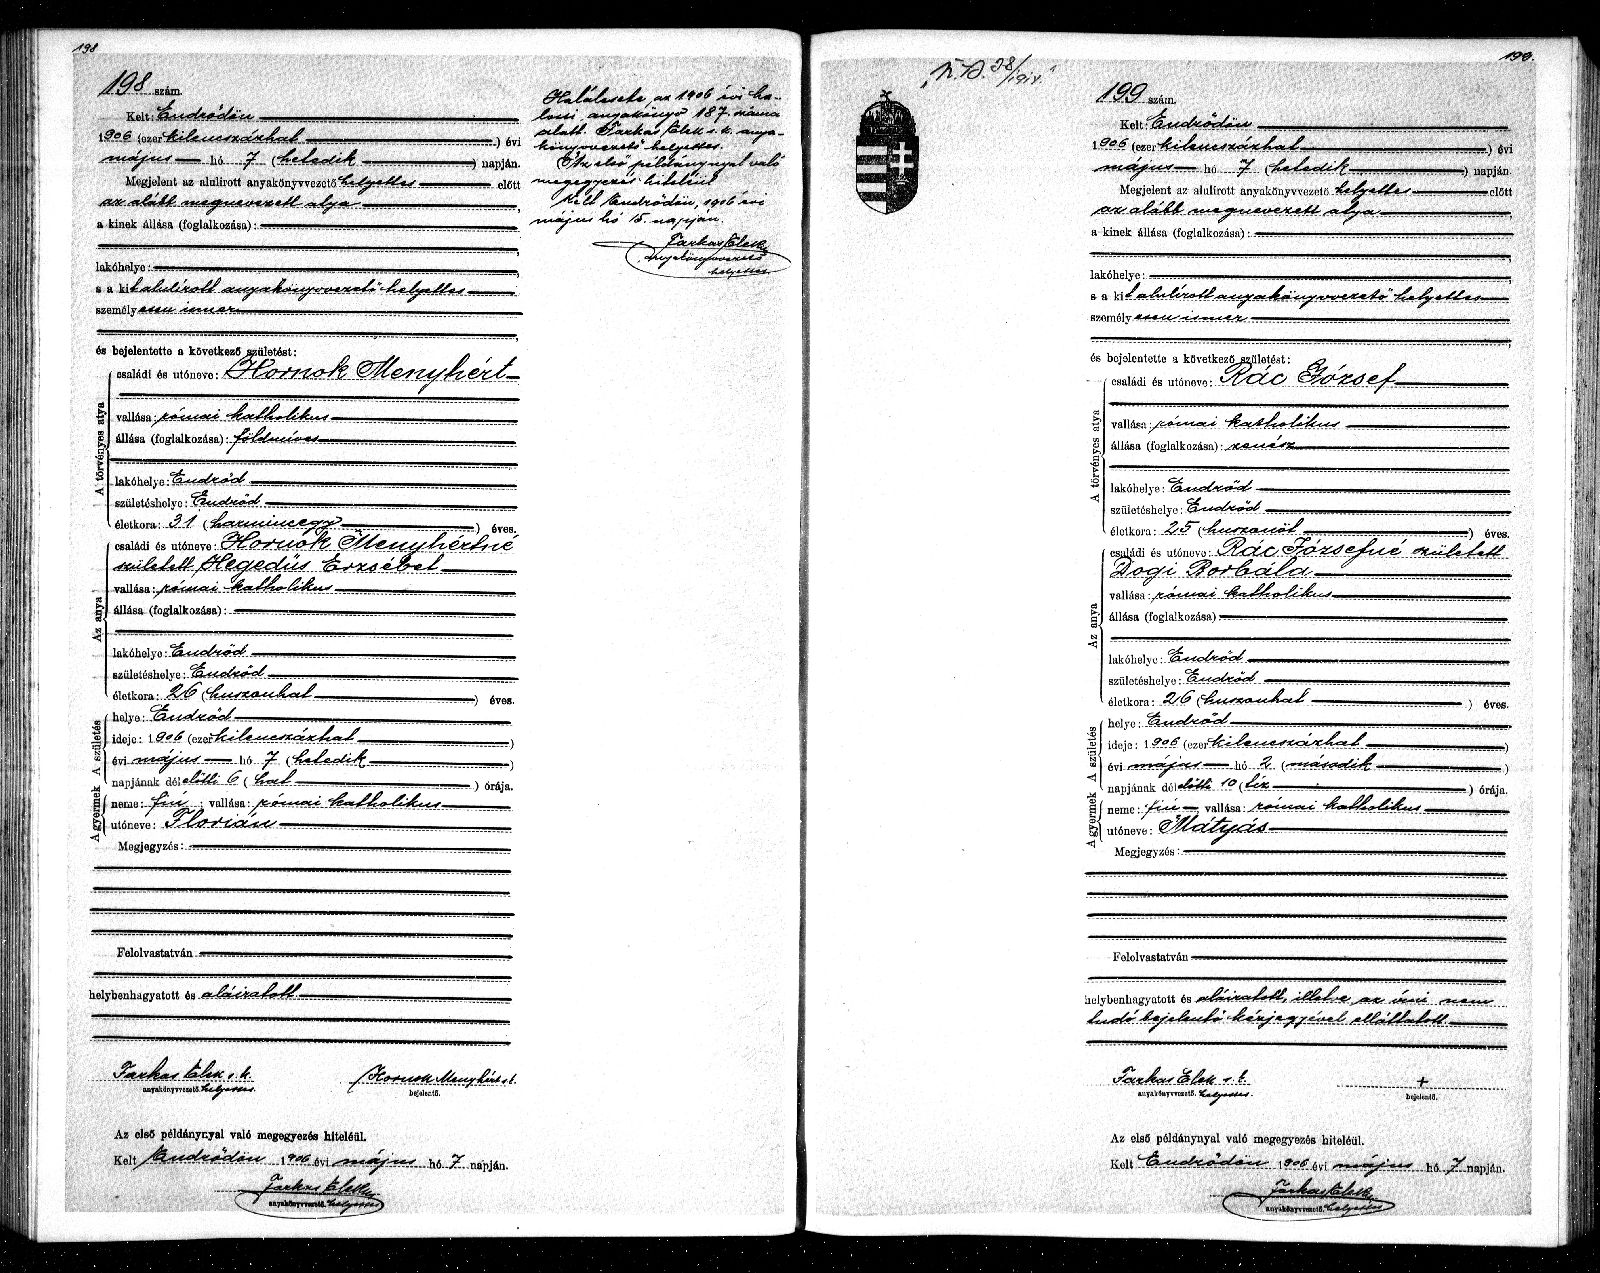 198
198 szám.
Kelt: Endrődön
1906 (ezer kilenczszázhat) évi
május hó 7 (hetedik) napján.
Megjelent az alulirott anyakönyvvezető helyettes előtt
az alább megnevezett atya,
a kinek állása (foglalkozása):
lakóhelye:
s a kit alulirott anyakönyvvezető helyettes
személyesen ismer
és bejelentette a következő születést:
A törvényes atya
családi és utóneve: Hornok Menyhért
vallása: római katholikus
állása (foglalkozása): földmíves
lakóhelye: Endrőd
születéshelye: Endrőd
életkora: 31 (harmincegy) éves.
Az anya
családi és utóneve: Hornok Menyhértné
született Hegedüs Erzsébet
vallása: római katholikus
állása (foglalkozása):
lakóhelye: Endrőd
születéshelye: Endrőd
életkora: 26 (huszonhat) éves.
A születés
helye: Endrőd
ideje: 1906 (ezer kilenczszázhat)
évi május hó 7 (hetedik)
napjának délelőtti 6 (hat) órája.
A gyermek
neme: fiú; vallása: római katholikus
utóneve: Florián
Megjegyzés:
Felolvastatván
helybenhagyatott és aláiratott.
Farkas Elek s. k. Hornok Menyhért s. k.
anyakönyvvezető helyettes. bejelentő.
Az első példánynyal való megegyezés hiteléül.
Kelt Endrődön 1906 évi május hó 7 napján.
Farkas Elek
anyakönyvvezető. helyettes
Halálesete az 1906 évi ha-
lotti anyakönyv 187. száma
alatt. Farkas Elek s. k. anya-
könyvvezető helyettes.
Az első példánynyal való
megegyezés hiteléül
Kelt Endrődön, 1906 évi
május hó 15. napján.
Farkas Elek
anyakönyvvezető
helyettes
199.
199 szám.
Kelt: Endrődön
1906 (ezer kilenczszázhat) évi
május hó 7 (hetedik) napján.
Megjelent az alulirott anyakönyvvezető helyettes előtt
az alább megnevezett atya
a kinek állása (foglalkozása):
lakóhelye:
s a kit alulirott anyakönyvvezető helyettes
személyesen ismer
és bejelentette a következő születést:
A törvényes atya
családi és utóneve: Rác József
vallása: római katholikus
állása (foglalkozása): zenész
lakóhelye: Endrőd
születéshelye: Endrőd
életkora: 25 (huszonöt) éves.
Az anya
családi és utóneve: Rác Józsefné született
Dógi Borbála
vallása: római katholikus
állása (foglalkozása)
lakóhelye: Endrőd
születéshelye: Endrőd
életkora: 26 (huszonhat) éves.
A születés
helye: Endrőd
ideje: 1906 (ezer kilenczszázhat)
évi május hó 2 (második)
napjának délelőtti 10 (tíz) órája.
A gyermek
neme: fiú vallása: római katholikus
utóneve: Mátyás
Megjegyzés:
Felolvastatván
helybenhagyatott és aláiratott, illetve az írni nem
tudó bejelentő kézjegyével elláttatott
Farkas Elek s. k. +
anyakönyvvezető. helyettes. bejelentő.
Az első példánynyal való megegyezés hiteléül.
Kelt Endrődön 1906 évi május hó 7 napján.
Farkas Elek
anyakönyvvezető. helyettes